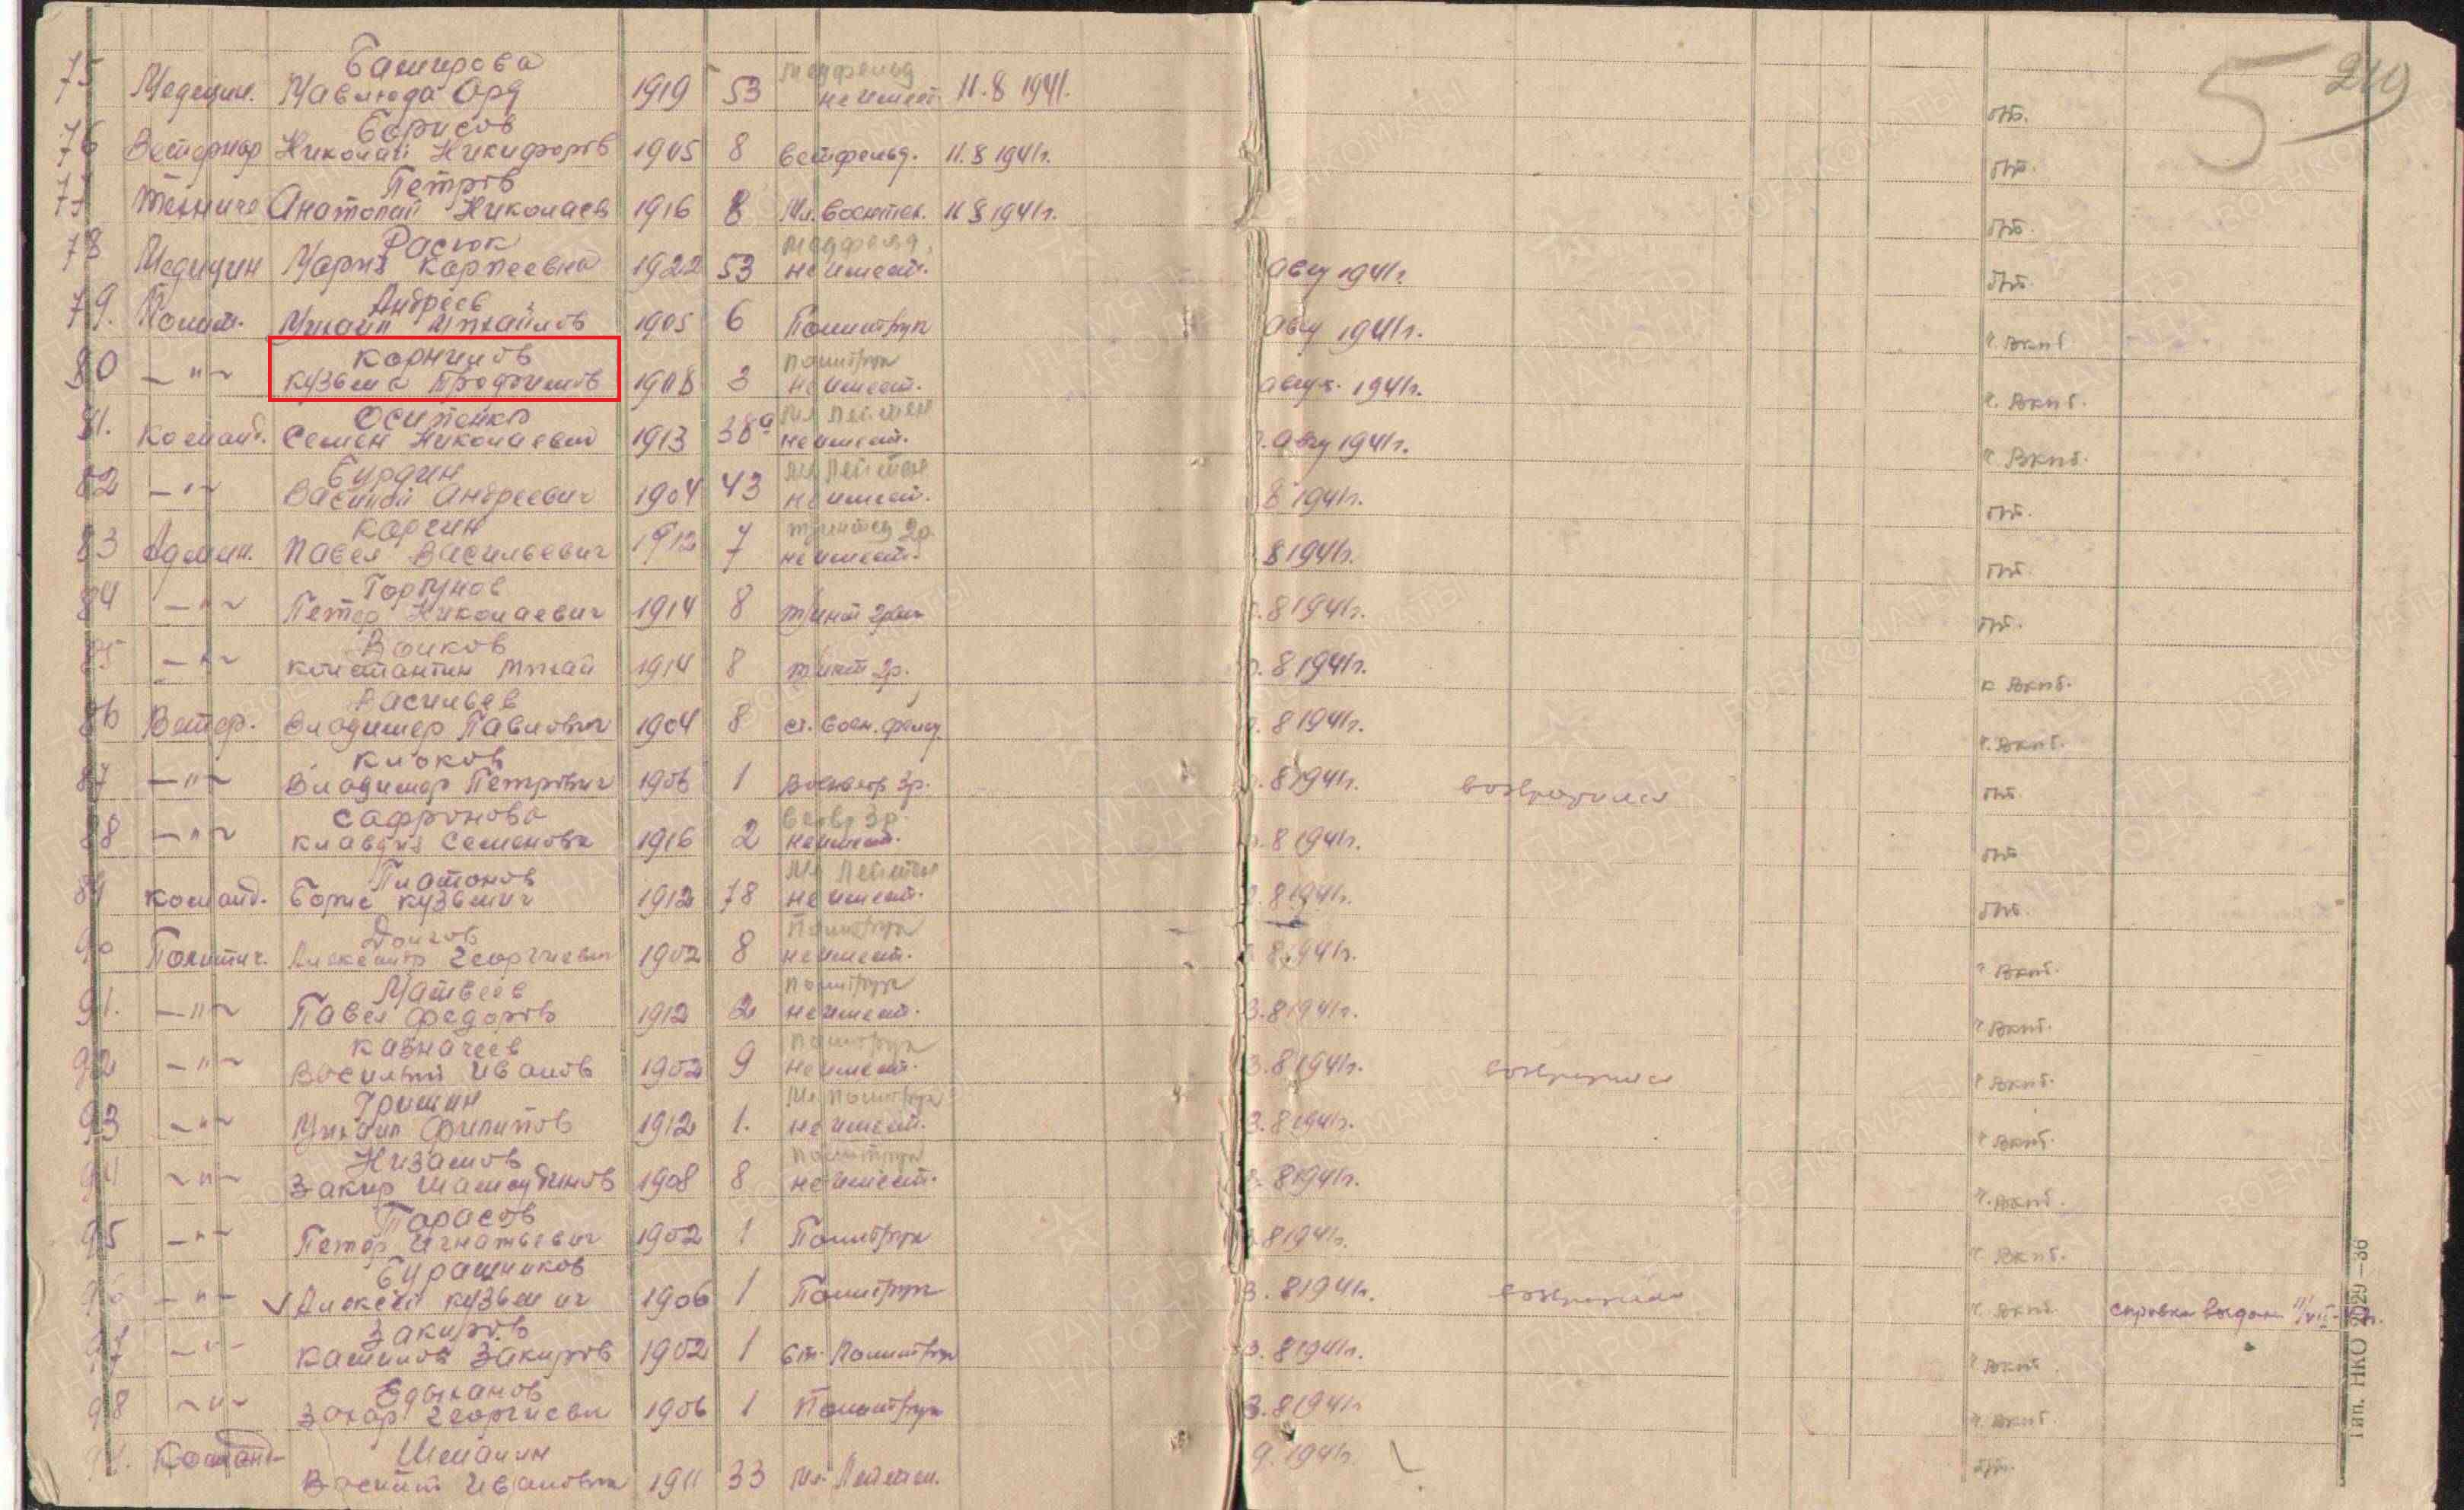 219
5
75 Медицин. Баширова
Мавлюда Орд 1919 53 медфельд
не имеет. 11.8 1941. б/п.
76 Ветеринар Борисов
Николай Никифоров 1905 8 ветфельд. 11.8 1941г. б/п.
77 Техниче Петров
Анатолий Николаев 1916 8 Мл. воентех. 11 8 1941г. б/п.
78 Медицин Расюк
Мария Карпеевна 1922 53 медфельд.
не имеет. авгу 1941г. б/п.
79. Полит. Андреев
Михаил Михайлов 1905 6 Политрук авгу 1941г. ч. вкпб
80 —"— Корнилов
Кузьма Трофимов 1908 3 политрук
не имеет. август. 1941г. ч. вкпб.
81. Команд. Осипенко
Семен Николаевич 1913 38а мл лейтен
не имеет. авгу 1941г. ч вкпб.
82 —"— Бурдин
Василий Андреевич 1904 43 мл лейтен
не имеет. 8 1941г. б/п.
83 Админ. Каргин
Павел Васильевич 1912 7 т/интен 2р
не имеет. 8 1941г. б/п.
84 —"— Горгунов
Петер Николаевич 1914 8 т/инт 2ран 8 1941г. б/п.
85 —"— Волков
Константин Михай 1914 8 т/инт 2р. 8 1941г. к вкпб.
86 Ветер. Васильев
Владимер Павлович 1904 8 ст. воен. фельд 8 1941г. ч. вкпб.
87 —"— Клюков
Владимер Петрович 1906 1 Военветр 3р. 8 1941г. возвратился б/п.
88 —"— Сафронова
Клавдия Семеновна 1916 2 в ветвр 3р.
не имеет. 8 1941г. б/п
89 Команд. Платонов
Борис Кузьмич 1912 78 Мл Лейтен
не имеет. 8 1941г. б/п.
90 Политич. Долгов
Александр Георгиевич 1902 8 Политрук
не имеет. 8 1941г. ч вкпб.
91. —"— Матвеев
Павел Федоров 1912 2 политрук
не имеет. 3.8 1941г. ч вкпб.
92 —"— Казначеев
Василий Иванов 1902 9 политрук
не имеет. 3.8 1941г. возвратился ч вкпб.
93 —"— Гришин
Михаил Филипов 1912 1. Мл политрук
не имеет. 3.8 1941г. ч вкпб.
94 —"— Низамов
Закир Шамсудинов 1908 8 политрук
не имеет. 8 1941г. ч. вкпб.
95 —"— Тарасов
Петер Игнатьевич 1902 1 Политрук 8 1941г. ч вкпб.
96 —"— Бурашников
Алексей Кузьмич 1906 1 Политрук 3. 8 1941г. возвратился ч вкпб. справка выдана
97 —"— Закиров
Закиров 1902 1 ст. Политрук 3. 8 1941г. ч вкпб.
98 —"— Едыханов
Захар Георгиеви 1906 1 Политрук 3.8 1941г ч. вкпб.
Команд Шемалин
Василий Иванович 1911 33 мл. Лейтен. 9. 1941г. б/п.
Тип. НКО 2029—36